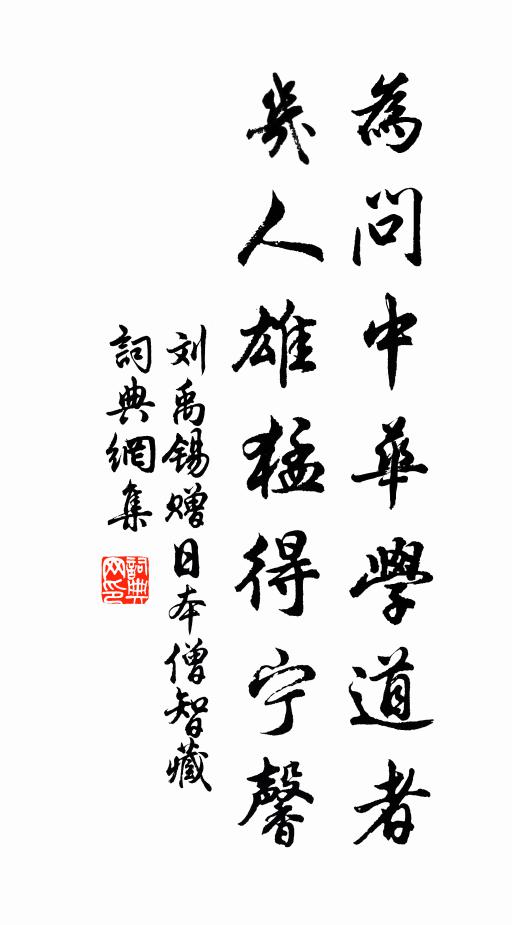 為問中華學道者
幾人雄猛得宁馨
刘禹锡赠日本僧智藏
詞典網集
詞典网印